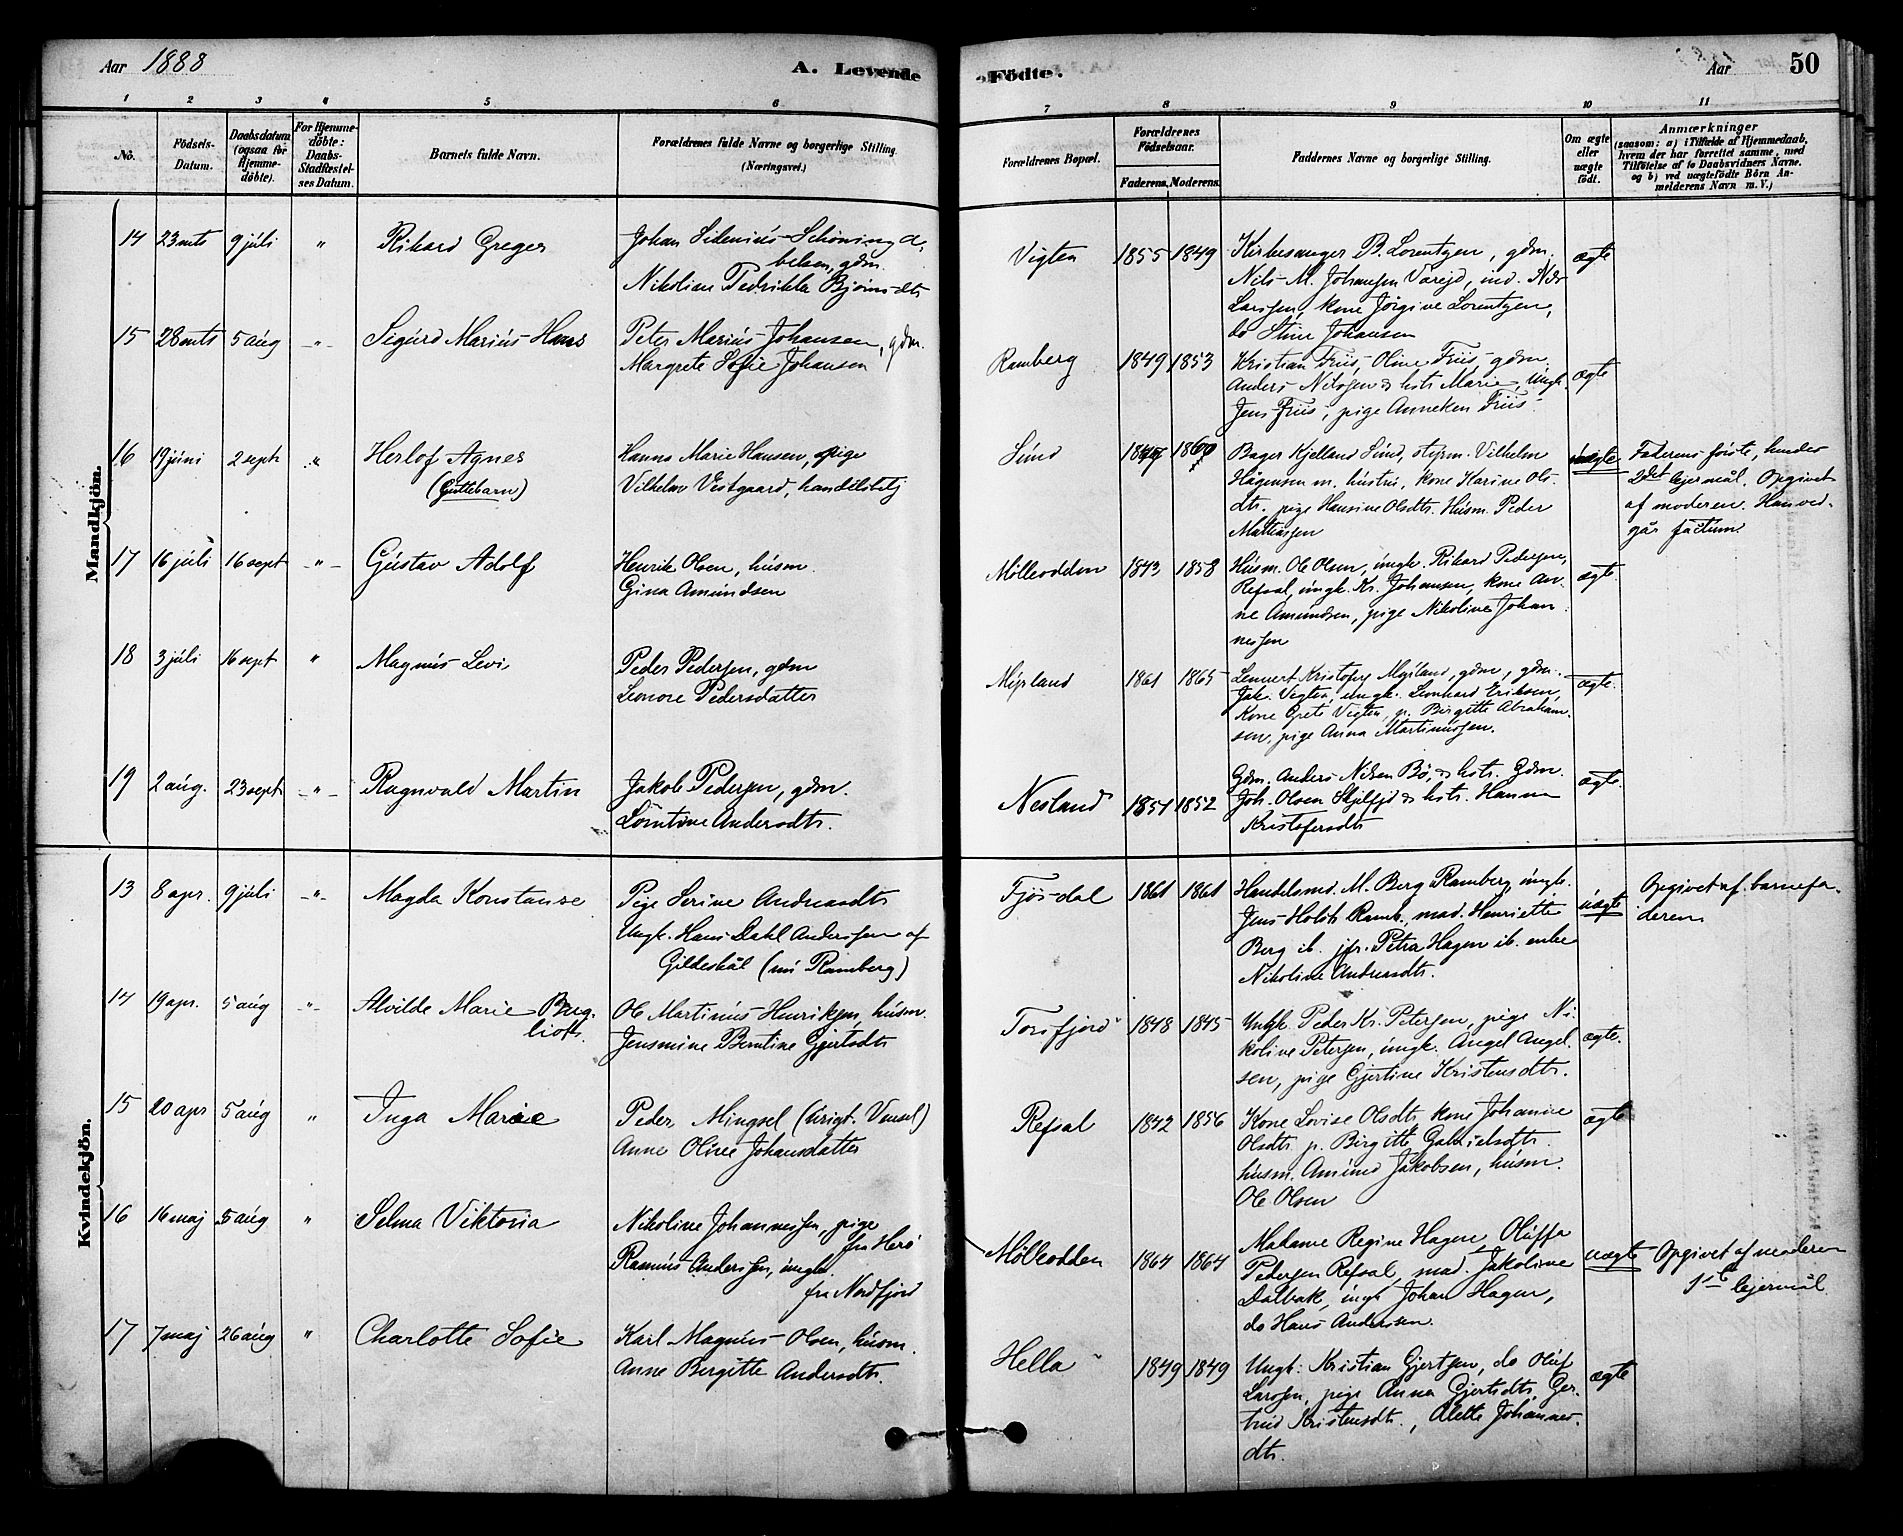 Aar 1888
A. Levende
Fødte.
Aar
50
1 2 3 4 5 6 7 8 9 10 11
No.
Födsels-
Datum.
Daabsdatum
(ogsaa for
Hjemme-
döbte).
For Hjemme-
döbte:
Daabs-
Stadfæstel-
ses Datum.
Barnets fulde Navn.
Forældrenes fulde Navne og borgerlige Stilling.
(Næringsvei.)
Forældrenes Bopæl.
Forældrenes
Födselsaar.
Faderens. Moderens.
Faddernes Navne og borgerlige Stilling.
Om ægte
eller
uægte
født.
Anmærkninger
(saasom: a) i Tilfælde af Hjemmedaab,
hvem der har forrettet samme, med
Tilføielse af to Daabsvidners Navne.
og b) ved uægtefödte Börn An-
melderens Navn m. V.)
Mandkjön.
14 23 mts 9 júli " Rikard Greger
Johan Sidenius Schöning A-
belsen, gdm.
Nikoline Fedrikka Björnsdtr
Vigten 1855 1849
Kirkesanger B. Lorentzen, gdm.
Nils M. Johansen Varejd, ind. Nils
Larssen, kone Jörgine Lorentzen,
do Stine Johansen
ægte
15 28 mts 5 aúg -"- Sigúrd Mariús Hans
Peter Mariús Johansen, gdm.
Margrete Sofie Johansen
Ramberg 1849 1853
Kristian Friis, Oline Friis, gdm.
Anders Nilssen & hstr Marie, Ungk.
Jens Friis, pige Anneken Friis.
ægte
16 19 júni 2 sept " Herlof Agnes
(Guttebarn)
Hanna Marie Hansen, pige
Vilhelm Vestgaard, handelsbetj
Súnd
Bager Kjelland Súnd, styrm. Vilhelm
Hågensen m. hústrú, kone Karine Ols-
dtr. pige Hansine Olsdtr. Húsm. Peder
Mathiassen
uægte
Faderens förste, hendes
2det lejermål. Opgivet
af moderen. Han ved-
går factum
17 16 júli 16 sept -"- Gústav Adolf
Henrik Olsen, húsm.
Gina Amúndsen
Mölleodden 1843 1858
Húsm. Ole Olsen, úngk. Rikard Pedersen,
Refsal, úngk. Kr. Johansen, kone An-
ne Amúndsen, pige Nikoline Johan-
nessen
ægte
18 3 júli 16 sept " Magnús Levi
Peder Pedersen, gdm
Leonore Pedersdatter
Mýrland 1861 1865
Lennert Kristofers Mýrland, gdm, gdm.
Jak. Vigten, úngk. Leonhard Eriksen,
Kone Grete Vigten, p. Birgitte Abraham-
sen, pige Anna Martinússen.
ægte.
19 2 aúg. 23 sept -"- Ragnvald Martin
Jakob Pedersen, gdm.
Lorntine Andersdtr.
Nesland 1851 1852
Gdm. Anders Nilsen Bö, & hstr. Gdm.
Joh. Olsen Skjelfjd & hstr. Hanna
Kristofersdtr
ægte.
Kvindekjön.
13 8 apr. 9 júli -"- Magda Konstanse
Pige Serine Andreasdtr
Ungk. Hans Dahl Anderssen af
Gildeskål (nú Ramberg)
Fjös-dal 1861 1861
Handelsmd. M. Berg Ramberg, úngk.
Jens Holst Ramb. mad. Henriette
Berg ib. jfr. Petra Hagen ib. enke
Nikoline Andreasdtr.
úægte
Opgivet af barnefa-
deren
14 19 apr. 5 aúg -"- Alvilde Marie Berg-
liot
Ole Martinús Henriksen, húsm.
Jensmine Berntine Gjertsdtr
Torsfjord 1848 1845
Ungk. Peder Kr. Petersen, pige Ni-
koline Petersen, úngk. Angel Angel-
sen, pige Gjertine Kristensdtr.
ægte.
15 20 apr 5 aúg " Inga Marie
Peder Mingsel (úrigt. Vensel)
Anne Oline Johansdatter
Refsal 1842 1856
Kone Lovise Olsdtr kone Johanne
Olsdtr. p. Birgitte Gabrielsdtr.
húsm. Amúnd Jakobsen, húsm.
Ole Olsen
ægte
16 16 maj 5 aúg " Selma Viktoria
Nikoline Johannessen, pige
fra Herö
Rasmús Anderssen, úngk.
fra Nordfjord
Mölleodden 1864 1864
Madame Regine Hagen, Olúffa
Pedersen Refsal, mad. Jakoline
Dalbak, úngk Johan Hagen,
do Hans Anderssen.
uægte
Opgivet af moderen
1ste lejermål
17 7 maj 26 aúg " Charlotte Sofie
Karl Magnús Olsen, húsm.
Anne Birgitte Andersdtr.
Hella 1849 1849
Ungk: Kristian Gjertsen, do Olúf
Larssen, pige Anna Gjertsdtr, Ger-
trud Kristensdtr., Alette Johannes-
dtr.
ægte